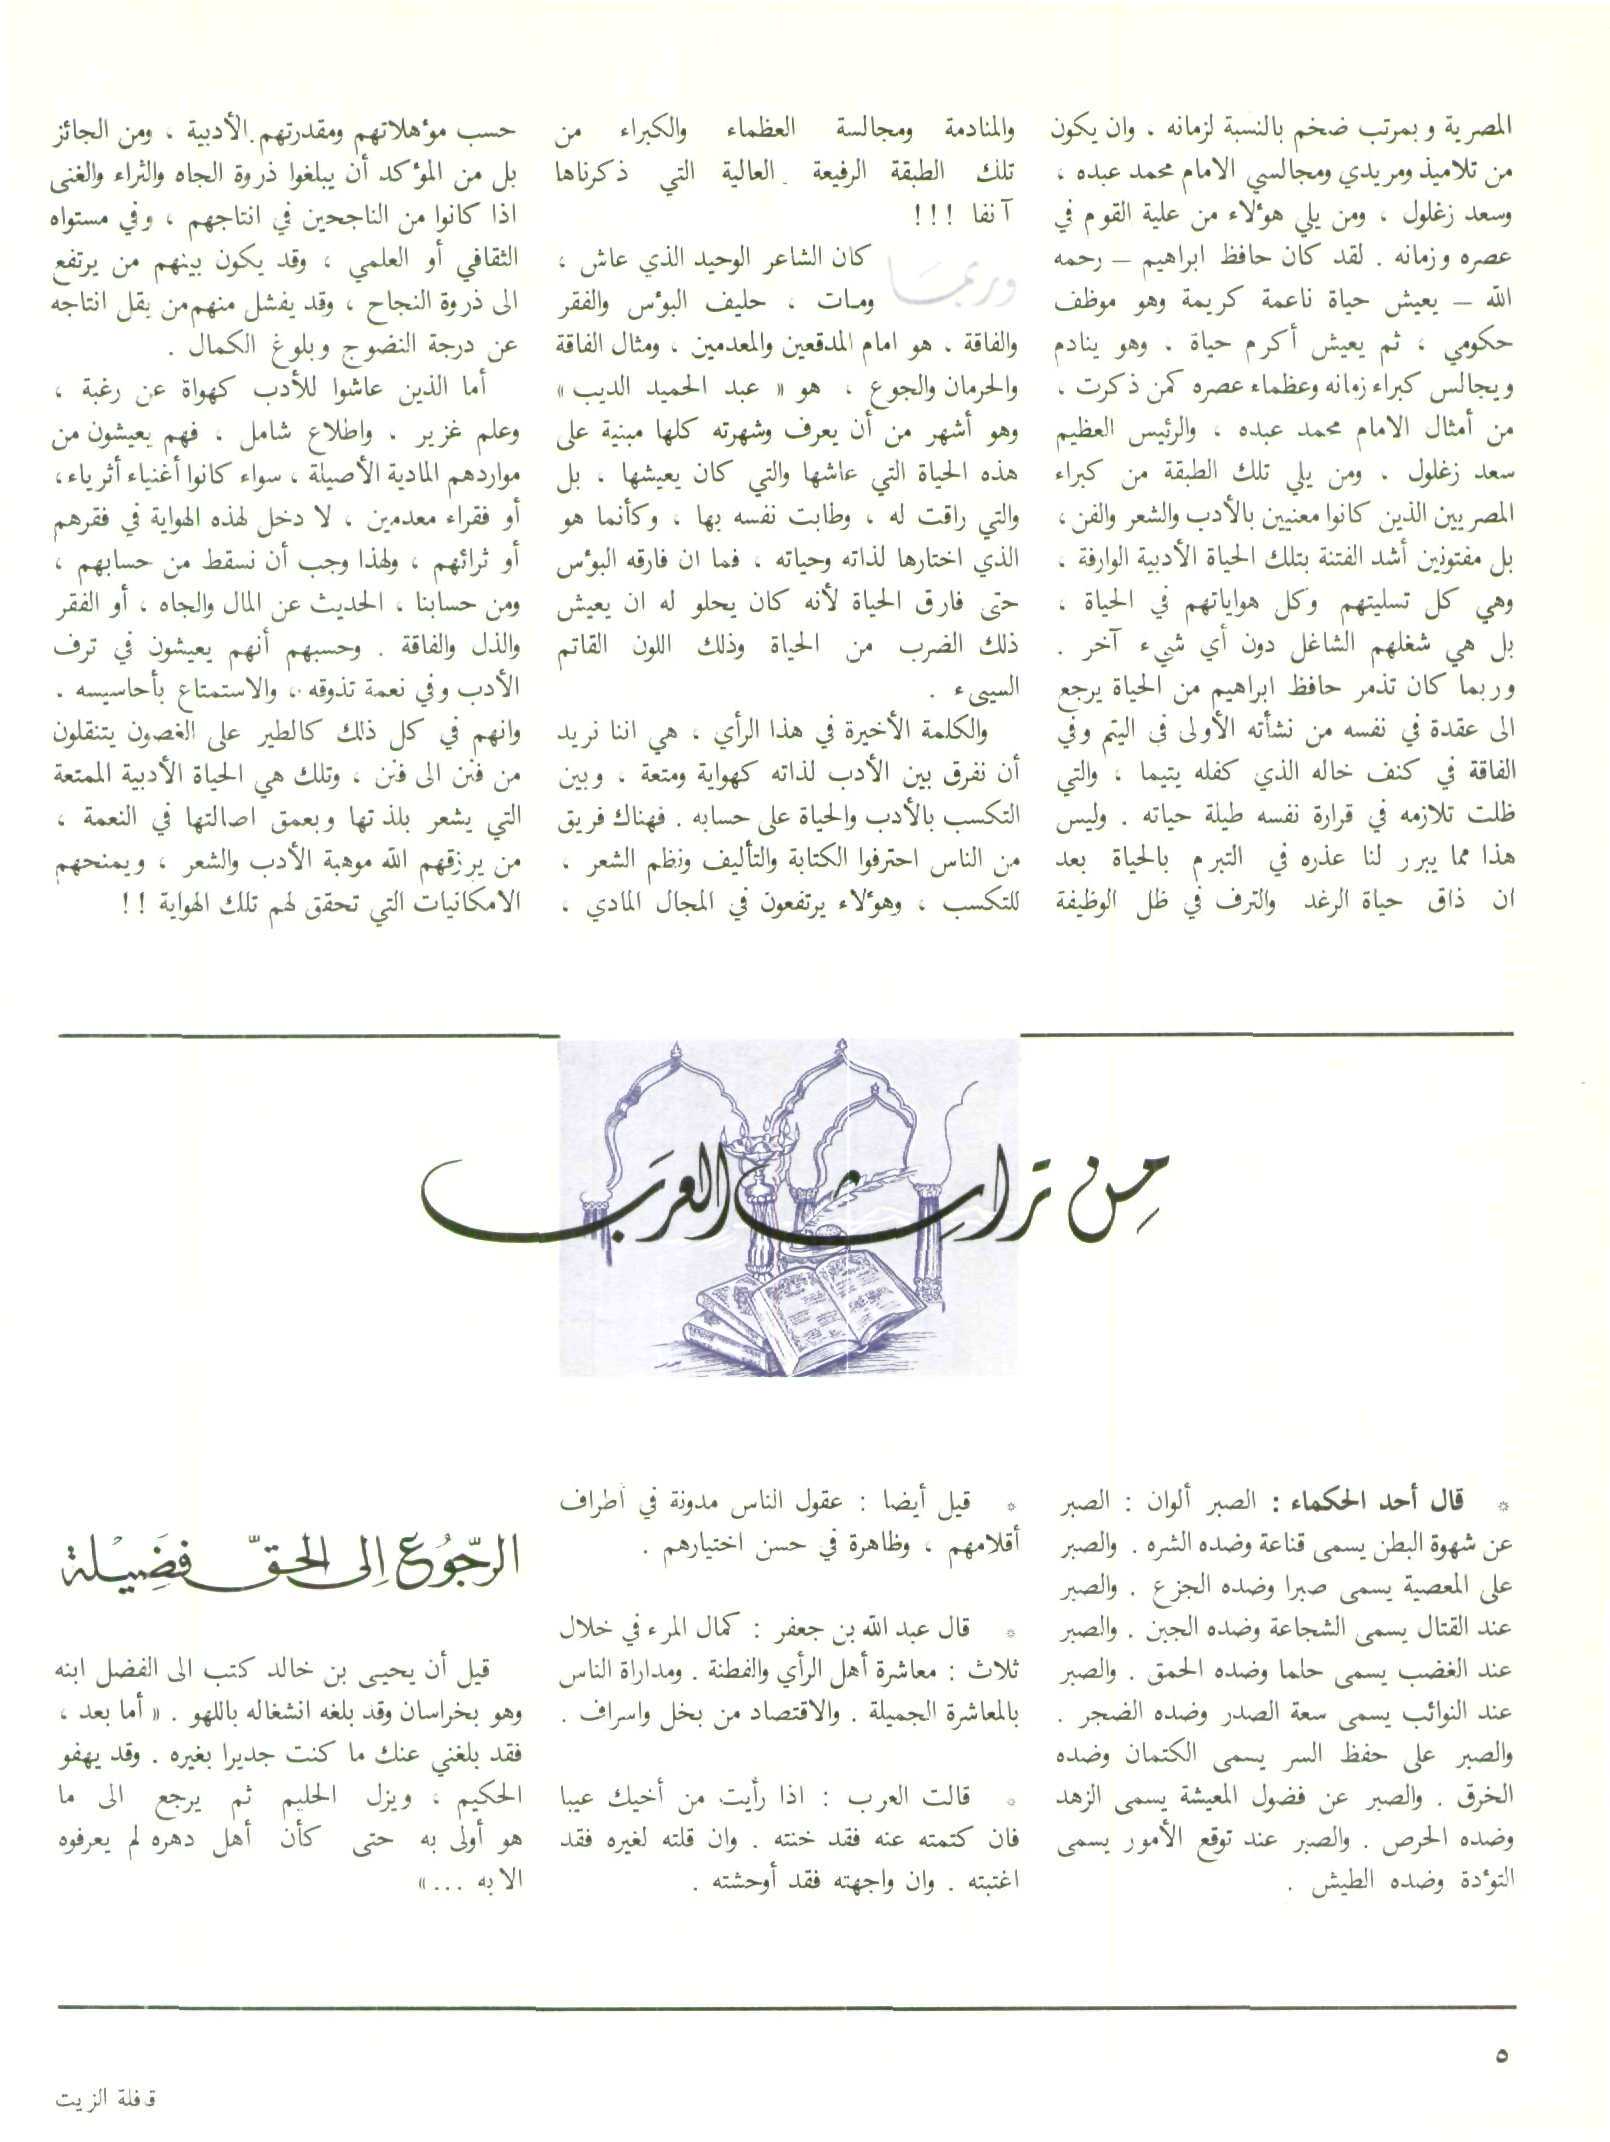 المصرية وبمرتب ضخم بالنسبة لزمانه ، وان يكون
من تلاميذ ومريدي ومجالسي الامام محمد عبده ،
وسعد زغلول ، ومن يلي هؤلاء من علية القوم في
عصره وزمانه . لقد كان حافظ ابراهيم – رحمه
الله – يعيش حياة ناعمة كريمة وهو موظف
حكومي ، ثم يعيش أكرم حياة ، وهو ينادم
ويجالس كبراء زمانه وعظماء عصره كمن ذكرت ،
من أمثال الامام محمد عبده ، والرئيس العظيم
سعد زغلول ، ومن يلي تلك الطبقة من كبراء
المصريين الذين كانوا معنيين بالأدب والشعر والفن،
بل مفتونين أشد الفتنة بتلك الحياة الأدبية الوارفة ،
وهي كل تسليتهم وكل هواياتهم في الحياة ،
بل هي شغلهم الشاغل دون أي شيء آخر .
وربما كان تذمر حافظ ابراهيم من الحياة يرجع
الى عقدة في نفسه من نشأته الأولى في اليتم وفي
الفاقة في كنف خاله الذي كفله يتيما ، والتي
ظلت تلازمه في قرارة نفسه طيلة حياته . وليس
هذا مما يبرر لنا عذره في التبرم بالحياة بعد
ان ذاق حياة الرغد والترف في ظل الوظيفة
والمنادمة ومجالسة العظماء والكبراء من
تلك الطبقة الرفيعة العالية التي ذكرناها
آنفا ! ! !
وربما كان الشاعر الوحيد الذي عاش ،
ومات ، حليف البؤس والفقر
والفاقة ، هو امام المدقعين والمعدمين ، ومثال الفاقة
والحرمان والجوع ، هو « عبد الحميد الديب »
وهو أشهر من أن يعرف وشهرته كلها مبنية على
هذه الحياة التي عاشها والتي كان يعيشها ، بل
والتي راقت له ، وطابت نفسه بها ، وكأنما هو
الذي اختارها لذاته وحياته ، فما ان فارقه البؤس
حتى فارق الحياة لأنه كان يحلو له ان يعيش
ذلك الضرب من الحياة وذلك اللون القاتم
السيىء .
والكلمة الأخيرة في هذا الرأي ، هي اننا نريد
أن نفرق بين الأدب لذاته كهواية ومتعة ، وبين
التكسب بالأدب والحياة على حسابه . فهناك فريق
من الناس احترفوا الكتابة والتأليف ونظم الشعر ،
للتكسب ، وهؤلاء يرتفعون في المجال المادي ،
حسب مؤهلاتهم ومقدرتهم الأدبية ، ومن الجائز
بل من المؤكد أن يبلغوا ذروة الجاه والثراء والغنى
اذا كانوا من الناجحين في انتاجهم ، وفي مستواه
الثقافي أو العلمي ، وقد يكون بينهم من يرتفع
الى ذروة النجاح ، وقد يفشل منهم من يقل انتاجه
عن درجة النضوج وبلوغ الكمال .
أما الذين عاشوا للأدب كهواة عن رغبة ،
وعلم غزير ، واطلاع شامل ، فهم يعيشون من
مواردهم المادية الأصيلة ، سواء كانوا أغنياء أثرياء،
أو فقراء معدمين ، لا دخل لهذه الهواية في فقرهم
أو ثرائهم ، ولهذا وجب أن نسقط من حسابهم ،
ومن حسابنا ، الحديث عن المال والجاه ، أو الفقر
والذل والفاقة . وحسبهم أنهم يعيشون في ترف
الأدب وفي نعمة تذوقه ، والاستمتاع بأحاسيسه .
وانهم في كل ذلك كالطير على الغصون يتنقلون
من فنن الى فنن ، وتلك هي الحياة الأدبية الممتعة
التي يشعر بلذتها وبعمق اصالتها في النعمة ،
من يرزقهم الله موهبة الأدب والشعر ، ويمنحهم
الامكانيات التي تحقق لهم تلك الهواية ! !
مِن تراثِ العرَب
* قال أحد الحكماء : الصبر ألوان : الصبر
عن شهوة البطن يسمى قناعة وضده الشره . والصبر
على المعصية يسمى صبرا وضده الجزع . والصبر
عند القتال يسمى الشجاعة وضده الجبن . والصبر
عند الغضب يسمى حلما وضده الحمق . والصبر
عند النوائب يسمى سعة الصدر وضده الضجر .
والصبر على حفظ السر يسمى الكتمان وضده
الخرق . والصبر عن فضول المعيشة يسمى الزهد
وضده الحرص . والصبر عند توقع الأمور يسمى
التؤدة وضده الطيش .
* قيل أيضا : عقول الناس مدونة في أطراف
أقلامهم ، وظاهرة في حسن اختيارهم .
* قال عبد الله بن جعفر : كمال المرء في خلال
ثلاث : معاشرة أهل الرأي والفطنة . ومداراة الناس
بالمعاشرة الجميلة . والاقتصاد من بخل واسراف .
* قالت العرب : اذا رأيت من أخيك عيبا
فان كتمته عنه فقد خنته . وان قلته لغيره فقد
اغتبته . وان واجهته فقد أوحشته .
الرجُوُع إلى الحقّ فضَيْلة
قيل أن يحيى بن خالد كتب الى الفضل ابنه
وهو بخراسان وقد بلغه انشغاله باللهو . « أما بعد ،
فقد بلغني عنك ما كنت جديرا بغيره . وقد يهفو
الحكيم ، ويزل الحليم ثم يرجع الى ما
هو أولى به حتى كأن أهل دهره لم يعرفوه
الا به ... »
٥
قافلة الزيت